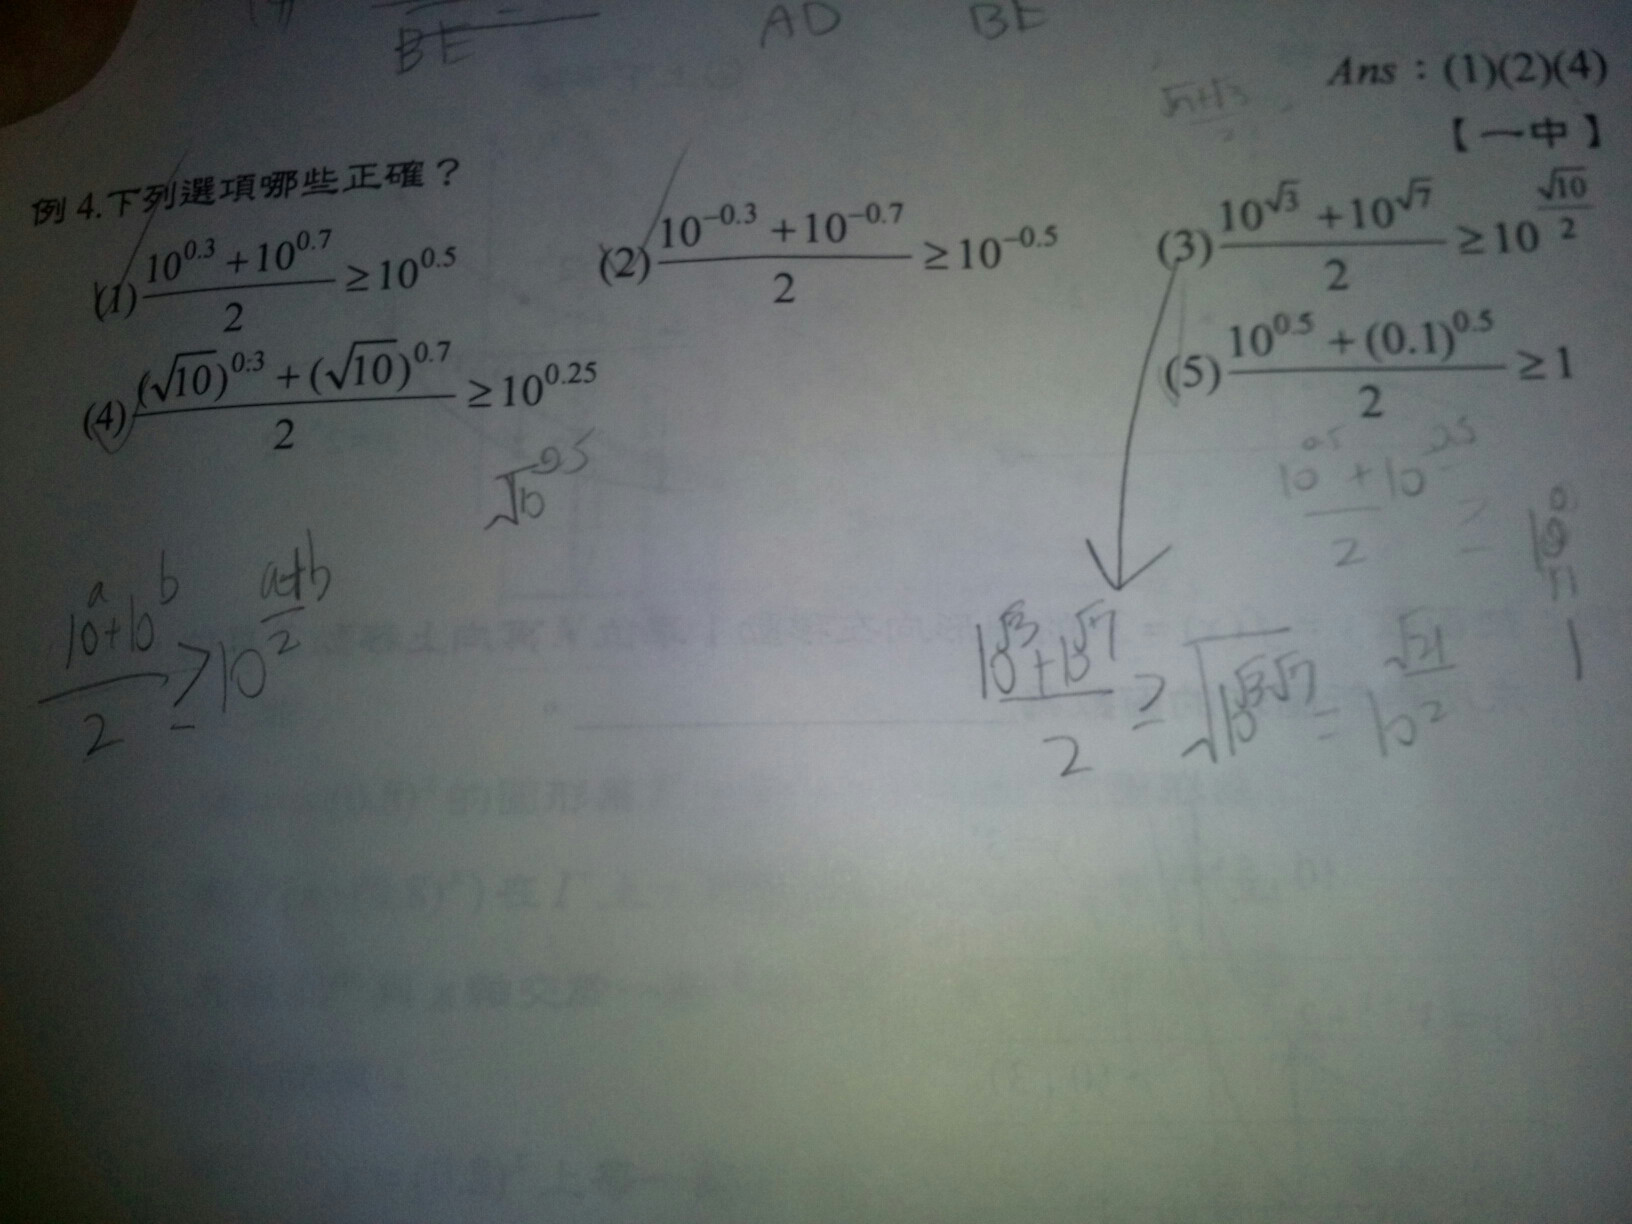 BE AD BE
Ans：(1)(2)(4)
【一中】
例 4.下列選項哪些正確？
(1) (10^0.3 + 10^0.7)/2 ≥ 10^0.5 (2) (10^−0.3 + 10^−0.7)/2 ≥ 10^−0.5 (3) (10^√3 + 10^√7)/2 ≥ 10^(√10/2)
(4) ((√10)^0.3 + (√10)^0.7)/2 ≥ 10^0.25 (5) (10^0.5 + (0.1)^0.5)/2 ≥ 1
√10^0.5
(10^a + 10^b)/2 ≥ 10^((a+b)/2)
(10^√3 + 10^√7)/2 ≥ √(10^√3√7) = 10^(√21/2)